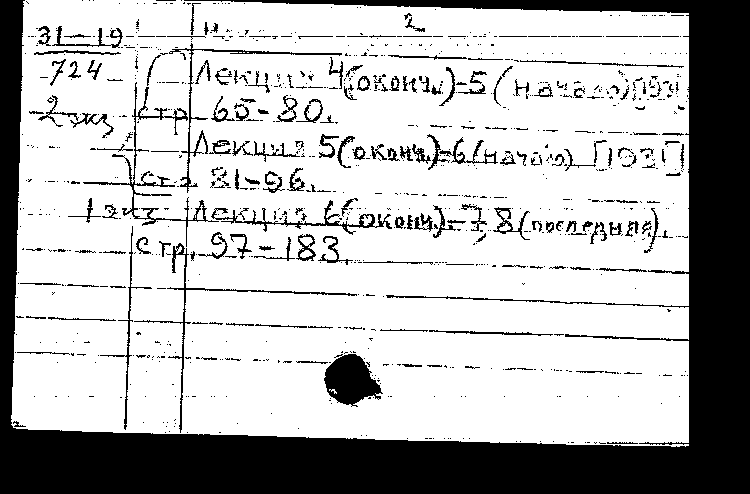 2
31-19
724
Лекция 4(оконч.)-5 (начало)[1931
2 экз стр. 65-80.
Лекция 5(оконч.)-6 (начало) [1931]
стр. 81-96.
1 экз Лекция 6(оконч.)-7, 8 (последняя).
стр. 97-183.